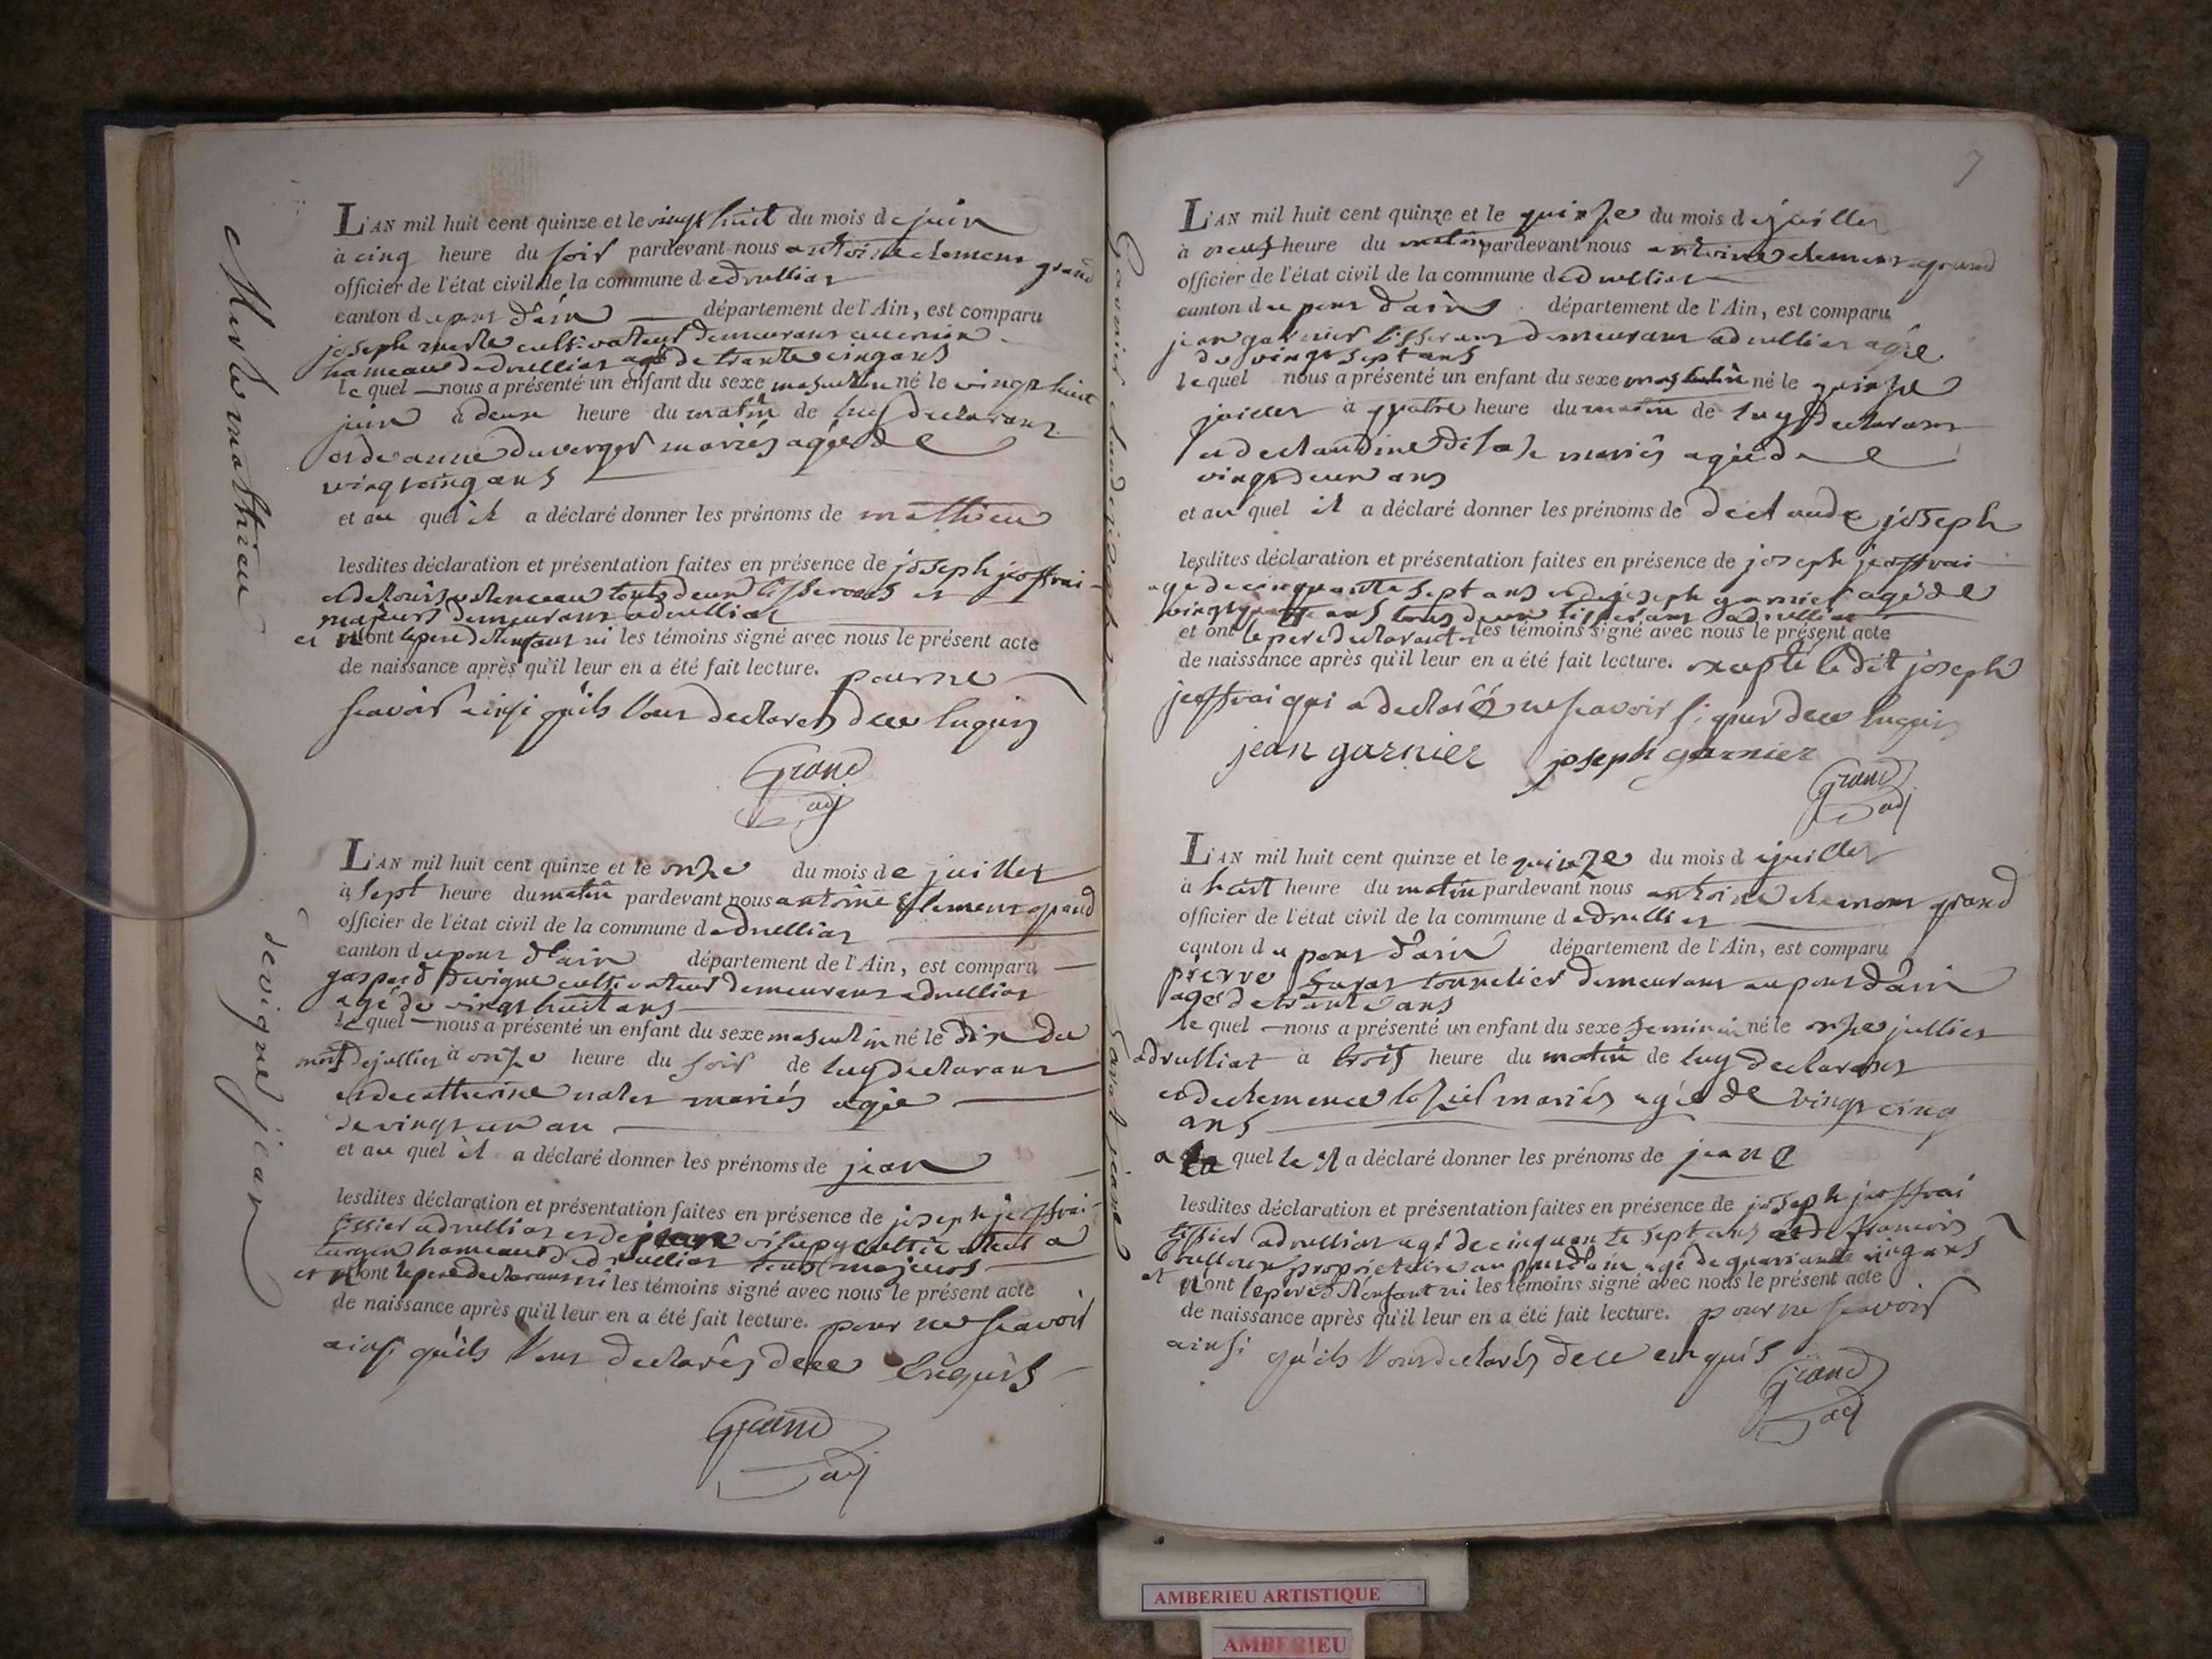 Merle mathieu
L'AN mil huit cent quinze et le vingt huit du mois de juin
à cinq heure du soir pardevant nous antoine clement grand
officier de l'état civil de la commune de druilliat
canton du pont d'ain département de l'Ain, est comparu
joseph merle cultivateur demeurant
hameau de druilliat agé de trante cinq ans
le quel nous a présenté un enfant du sexe masculin né le vingt huit
juin à deux heure du matin de luy declarant
et de anne duverger mariés agée de
vingt cinq ans
et au quel il a déclaré donner les prénoms de mathieu
lesdites déclaration et présentation faites en présence de joseph jeoffrai
et de louis tous deux tisserands et
majeurs demeurant a druilliat
et n'ont le pere de l'enfant ni les témoins signé avec nous le présent acte
de naissance après qu'il leur en a été fait lecture. pour ne
scavoir ainsi qu'ils l'ont declarés de ce enquis
Grand
adj
devigne jean
L'AN mil huit cent quinze et le onze du mois de juillet
à sept heure du matin pardevant nous antoine clement grand
officier de l'état civil de la commune de druilliat
canton du pont d'ain département de l'Ain, est comparu
gaspard devigne cultivateur demeurant a druilliat
agé de vingt huit ans
le quel nous a présenté un enfant du sexe masculin né le dix du
mois de jullier à onze heure du soir de luy declarant
et de catherine mariés agée
de vingt un an
et au quel il a déclaré donner les prénoms de jean
lesdites déclaration et présentation faites en présence de joseph jeoffrai
tissier a druilliat et de cultivateur a
hameau de druilliat tous majeurs
et n'ont le pere declarant ni les témoins signé avec nous le présent acte
de naissance après qu'il leur en a été fait lecture. pour ne scavoir
ainsi qu'ils l'ont declarés de ce enquis
Grand
adj
7
Garnier claude joseph
L'AN mil huit cent quinze et le quinze du mois de juillet
à neuf heure du matin pardevant nous antoine clement grand
officier de l'état civil de la commune de druilliat
canton du pont d'ain département de l'Ain, est comparu
jean garnier tisserant demeurant a druilliat agé
de vingt sept ans
le quel nous a présenté un enfant du sexe masculin né le quinze
juillet à quatre heure du matin de luy declarant
et de claudine mariés agée de
vingt deux ans
et au quel il a déclaré donner les prénoms de de claude joseph
lesdites déclaration et présentation faites en présence de joseph jeoffrai
agé de cinquante sept ans et de joseph garnier agé de
vingt quatre ans tous deux tisserans a druilliat
et ont le pere declarant et les témoins signé avec nous le présent acte
de naissance après qu'il leur en a été fait lecture. excepté le dit joseph
jeoffrai qui a declaré ne scavoir signer de ce enquis
jean garnier joseph garnier
Grand
adj
jeane
L'AN mil huit cent quinze et le quinze du mois de juillet
à huit heure du matin pardevant nous antoine clement grand
officier de l'état civil de la commune de druilliat
canton du pont d'ain département de l'Ain, est comparu
pierre tonnelier demeurant au pont d'ain
agé de trente ans
le quel nous a présenté un enfant du sexe feminin né le onze jullier
a druilliat à trois heure du matin de luy declarant
et de clemence mariés agée de vingt cinq
ans
a la quel le il a déclaré donner les prénoms de jeane
lesdites déclaration et présentation faites en présence de joseph jeoffrai
tissier a druilliat agé de cinquante sept ans et de francois
proprietaire au pont d'ain agé de quarante cinq ans
et n'ont le pere de l'enfant ni les témoins signé avec nous le présent acte
de naissance après qu'il leur en a été fait lecture. pour ne scavoir
ainsi qu'ils l'ont declarés de ce enquis
Grand
adj
AMBERIEU ARTISTIQUE
AMBERIEU